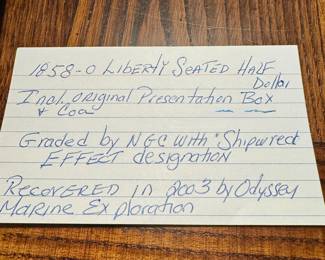 1858-O LIBERTY SEATED HALF
Dollar
Incl. ORIGINAL Presentation Box
& Coa
Graded by NGC WITH "Shipwreck
EFFECT designation
RECOVERED IN 2003 by Odyssey
MARINE Exploration